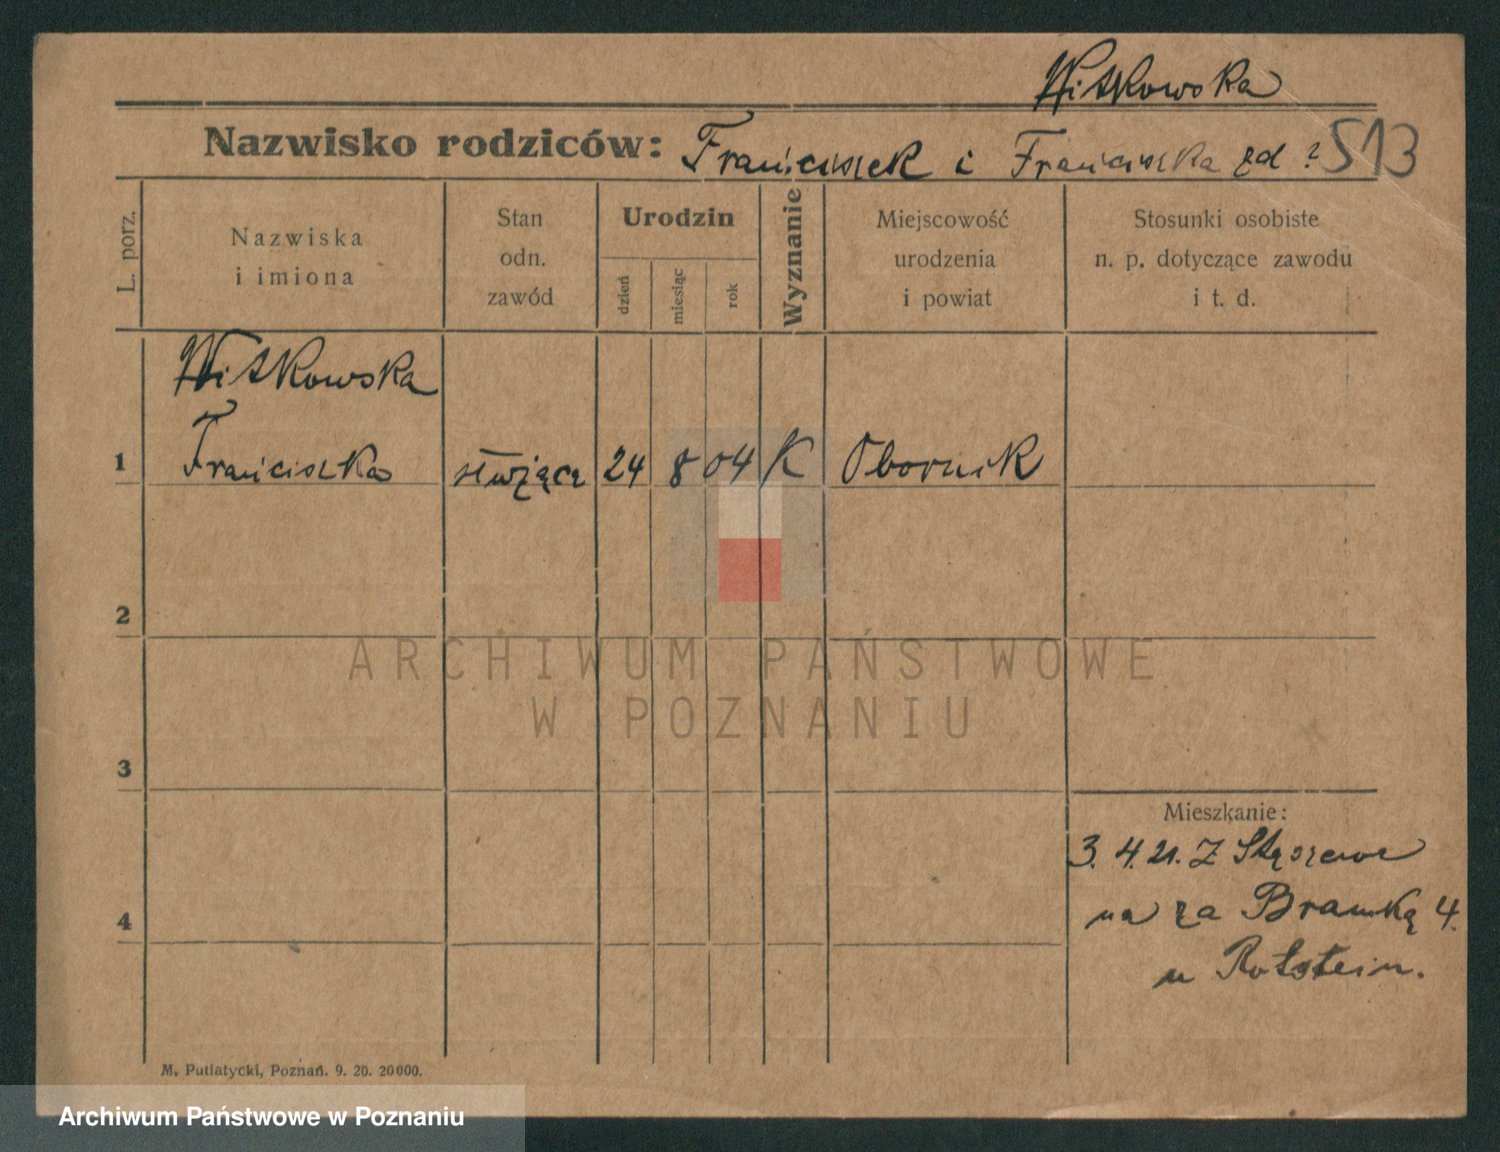 Witkowska
Nazwisko rodziców: Franciszek i Franciszka zd ? 513
L. porz.
Nazwiska
i imiona
Stan
odn.
zawód
Urodzin
dzień
miesiąc
rok
Wyznanie
Miejscowość
urodzenia
i powiat
Stosunki osobiste
n. p. dotyczące zawodu
i t. d.
Witkowska
1 Franciszka służąca 24 8 04 K Obornik
2
3
4
Mieszkanie:
3. 4. 21. Z Stęszewa
na za Bramką 4.
u Rotstein.
M. Putiatycki, Poznań. 9. 20. 20000.
ARCHIWUM PAŃSTWOWE
W POZNANIU
Archiwum Państwowe w Poznaniu